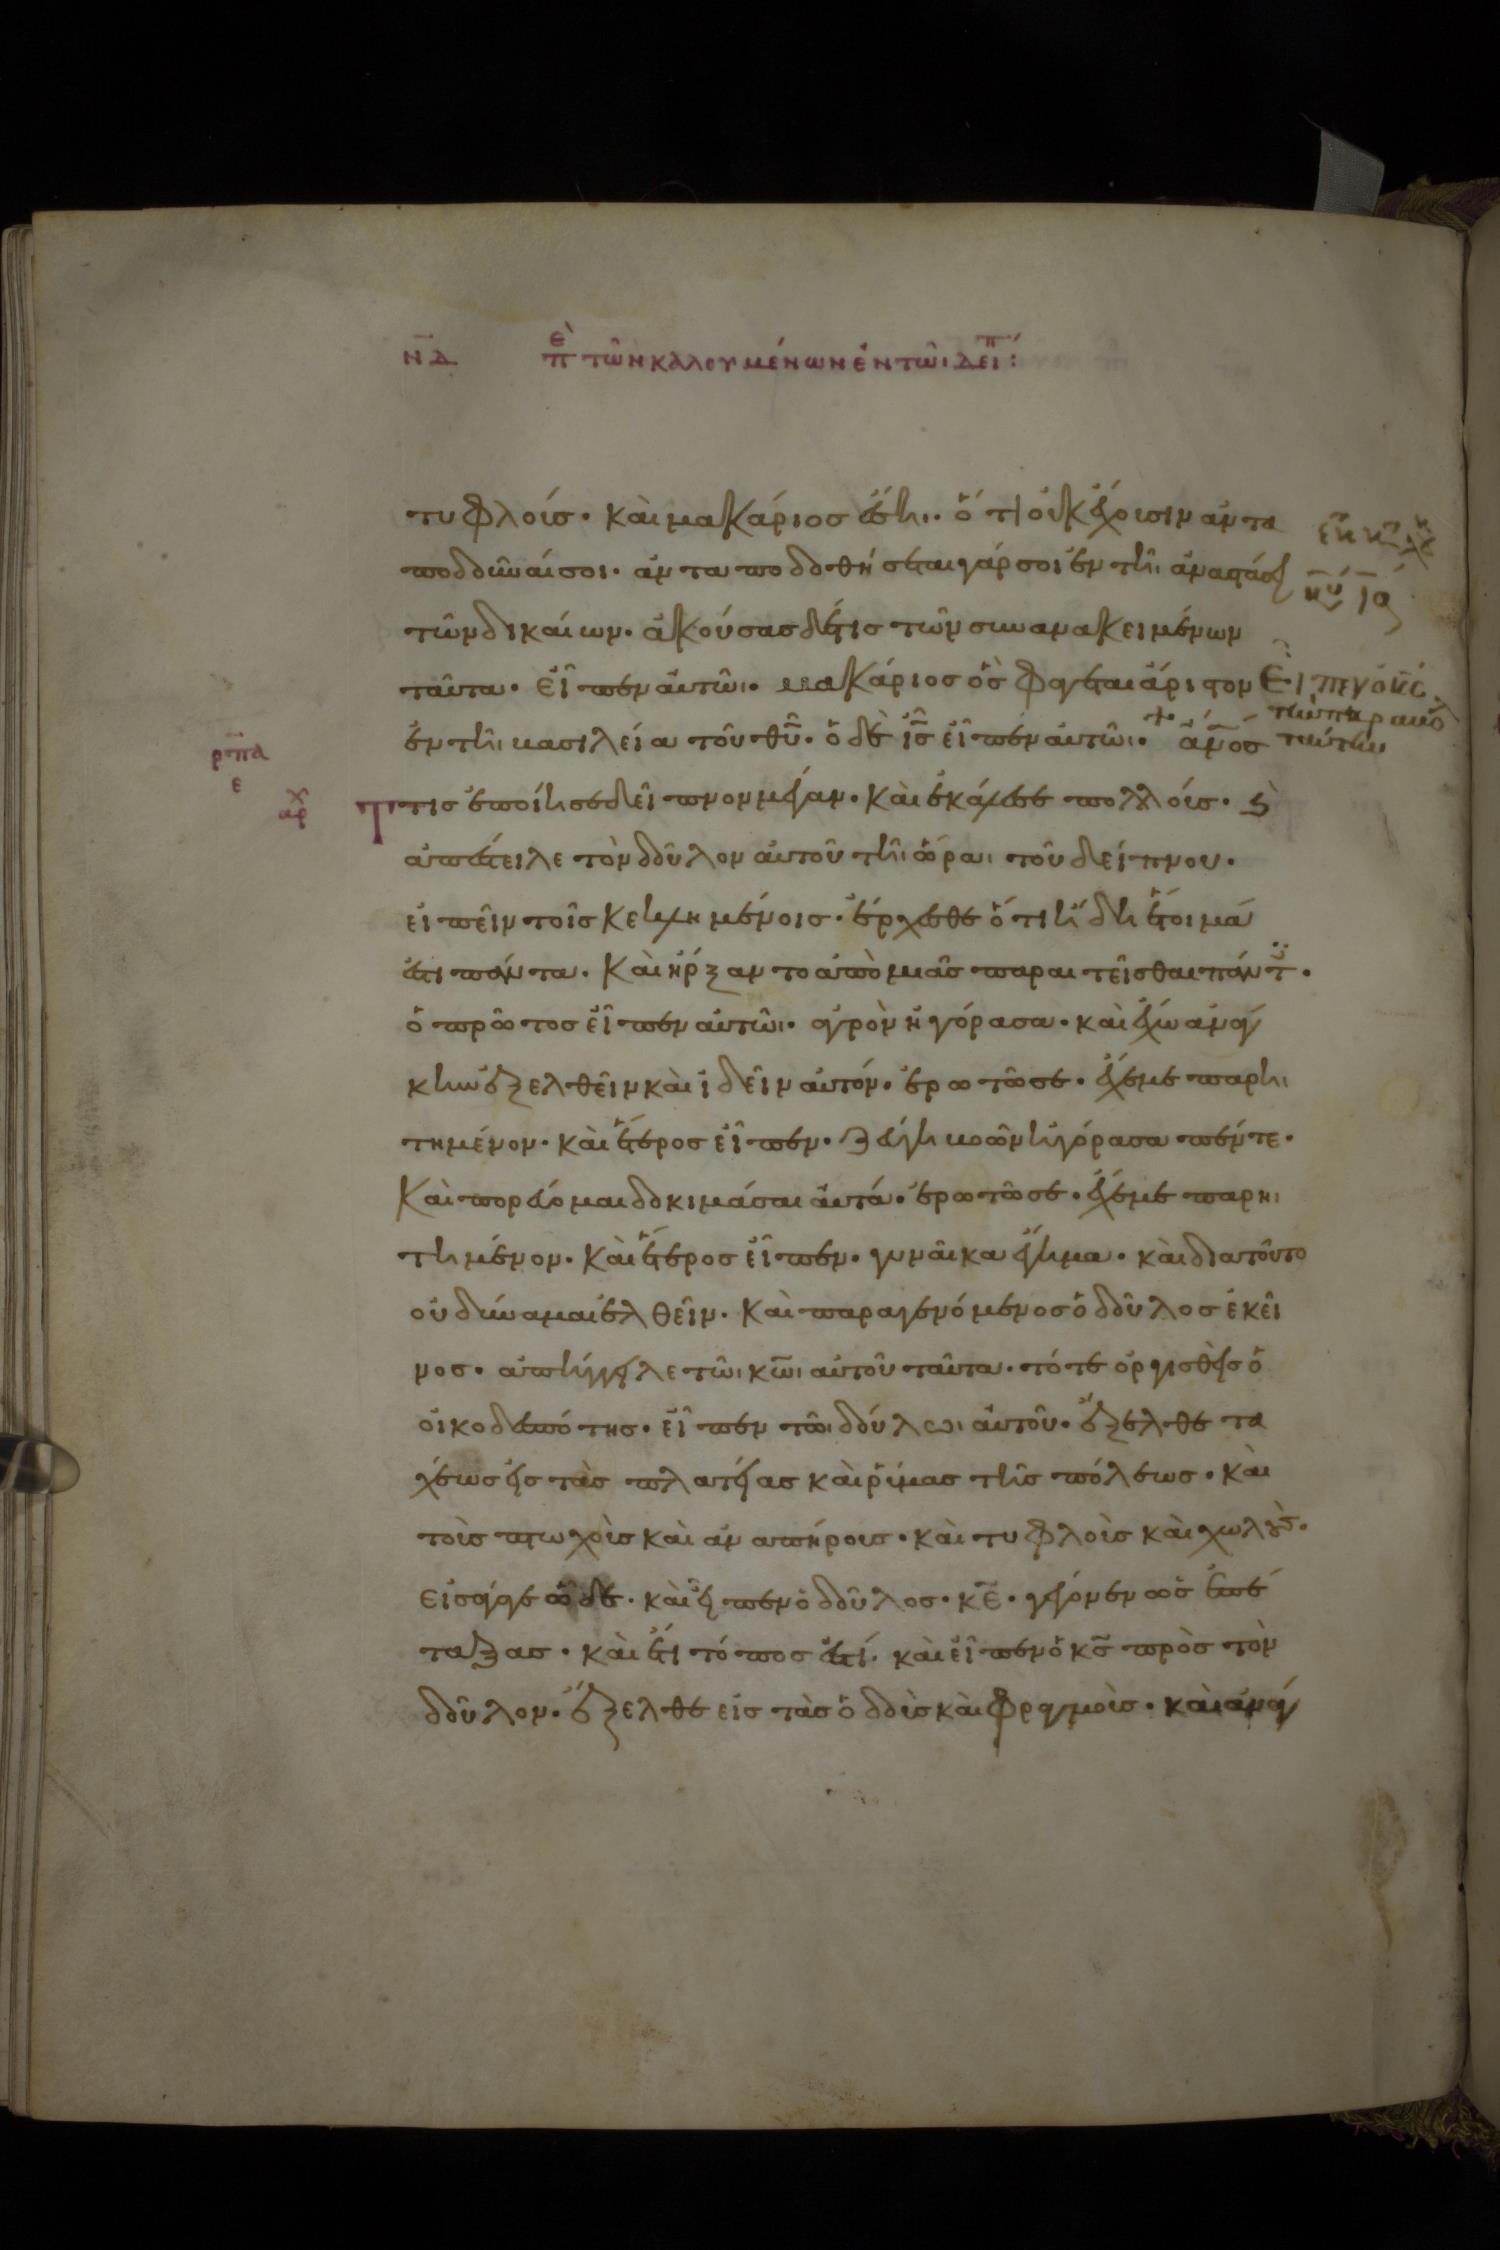 ΝΔ ΠΕ ΤΩΝ ΚΑΛΟΥΜΕΝΩΝ ΕΝ ΤΩΙ ΔΕΙΠ :
τυφλούς· καὶ μακάριος ἔσηι· ὅτι οὐκ ἔχουσιν ἀντα
ποδοῦναί σοι· ἀνταποδοθήσεται γάρ σοι ἐν τῆι ἀναστάσει
τῶν δικαίων· ἀκούσας δέ τις τῶν συνανακειμένων
ταῦτα· εἶπεν αὐτῶι· μακάριος ὃς φάγεται ἄριστον
ἐν τῆι βασιλεία τοῦ θυ· ὁ δὲ ις εἶπεν αὐτῶι· + ανος
ρπα
ε
αρχ
τις ἐποίησε δεῖπνον μέγαν· καὶ ἐκάλεσε πολλούς· ϗ
ἀπέστειλε τὸν δοῦλον αὐτοῦ τῆι ὥραι τοῦ δείπνου·
εἰπεῖν τοῖς κεκλημένοις· ἔρχεσθε ὅτι ἤδη ἕτοιμά
ἐστι πάντα· καὶ ἤρξαντο ἀπὸ μιᾶς παραιτεῖσθαι πάντ·
ὁ πρῶτος εἶπεν αὐτῶι· ἀγρὸν ἠγόρασα· καὶ ἔχω ἀνάγ
κην ἐξελθεῖν καὶ ἰδεῖν αὐτόν· ἐρωτῶ σε· ἔχε με παρηι
τημένον· καὶ ἕτερος εἶπεν· ζεύγη βοῶν ἠγόρασα πέντε·
καὶ πορεύομαι δοκιμάσαι αὐτά· ἐρωτῶ σε· ἔχε με παρηι
τημένον· καὶ ἕτερος εἶπεν· γυναῖκα ἔγημα· καὶ διατοῦτο
οὐ δύναμαι ἐλθεῖν· καὶ παραγενόμενος ὁ δοῦλος ἐκεῖ
νος· ἀπήγγειλε τῶι κωι αὐτοῦ ταῦτα· τότε ὀργισθεὶς ὁ
οἰκοδεσπότης· εἶπεν τῶι δούλωι αὐτοῦ· ἔξελθε τα
χέως εἰς τὰς πλατείας καὶ ῥύμας τῆς πόλεως· καὶ
τοὺς πτωχοὺς καὶ ἀναπήρους· καὶ τυφλοὺς καὶ χωλοὺς·
εἰσάγαγε ὧδε· καὶ εἶπεν ὁ δοῦλος· κε· γέγονεν ὡς ἐπέ
ταξας· καὶ ἔτι τόπος ἐστί· καὶ εἶπεν ὁ κς πρὸς τὸν
δοῦλον· ἔξελθε εἰς τὰς ὁδοὺς καὶ φραγμούς· καὶ ἀνάγ